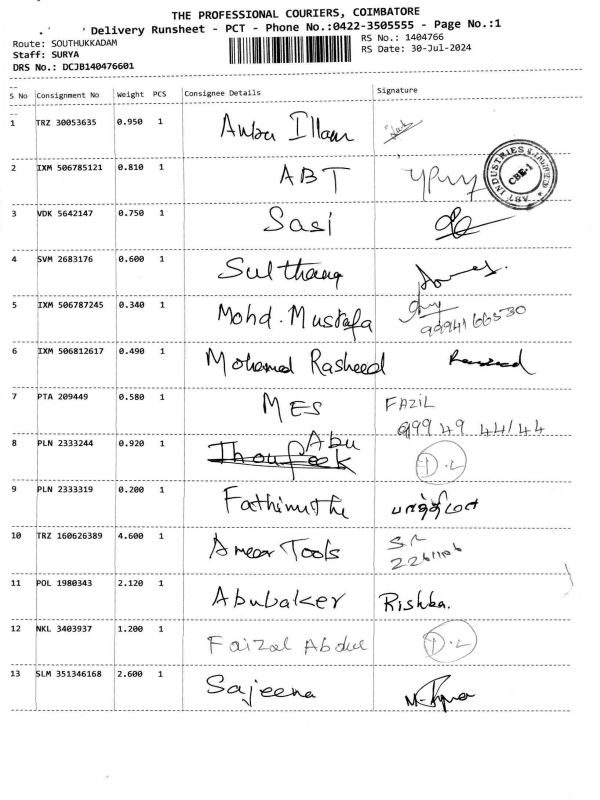 THE PROFESSIONAL COURIERS, COIMBATORE
Delivery Runsheet - PCT - Phone No.:0422-3505555 - Page No.:1
Route: SOUTHUKKADAM
Staff: SURYA
DRS No.: DCJB140476601
RS No.: 1404766
RS Date: 30-Jul-2024
S No Consignment No Weight PCS Consignee Details Signature
1 TRZ 30053635 0.950 1 Anbu Illam
2 IXM 506785121 0.810 1 ABT
ABT INDUSTRIES LIMITED CBE-1
3 VDK 5642147 0.750 1 Sasi
4 SVM 2683176 0.600 1 Sulthana
5 IXM 506787245 0.340 1 Mohd. Mustafa
9994166530
6 IXM 506812617 0.490 1 Mohamed Rasheed Rasheed
7 PTA 209449 0.580 1 MES FAZIL
99949 44144
8 PLN 2333244 0.920 1 Thoufeek Abu D.L
9 PLN 2333319 0.200 1 Fathimuthu பாத்திமா
10 TRZ 160626389 4.600 1 Ameer Tools
11 POL 1980343 2.120 1 Abubaker Rishba.
12 NKL 3403937 1.200 1 Faizal Abdul D.L
13 SLM 351346168 2.600 1 Sajeena